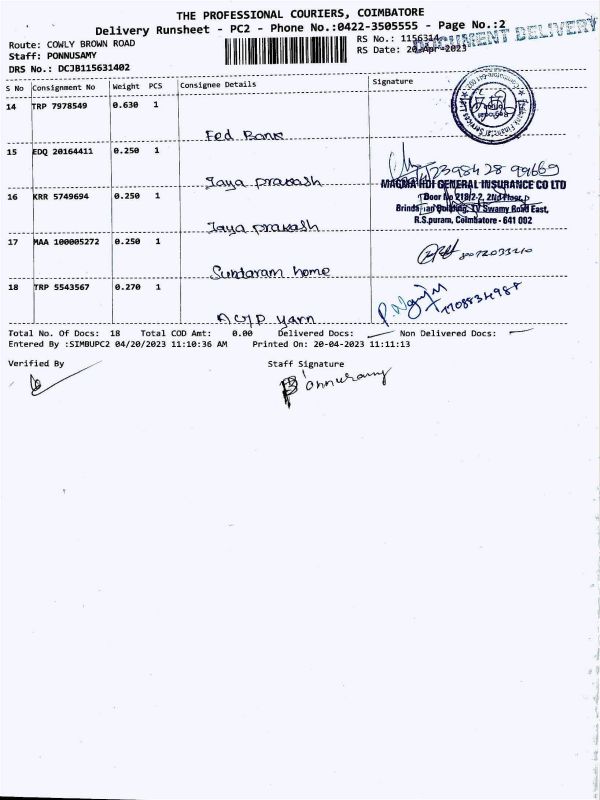 THE PROFESSIONAL COURIERS, COIMBATORE
Delivery Runsheet - PC2 - Phone No.:0422-3505555 - Page No.:2
DOCUMENT DELIVERY
Route: COWLY BROWN ROAD
RS No.: 1156314
Staff: PONNUSAMY
RS Date: 20-Apr-2023
DRS No.: DCJB115631402
S No Consignment No Weight PCS Consignee Details Signature
14 TRP 7978549 0.630 1
Fed Bank
15 EDQ 20164411 0.250 1
Jaya prakash
MAGMA HDI GENERAL INSURANCE CO LTD
16 KRR 5749694 0.250 1
Door No 218/2-2, 2nd Floor,
Building, TV Swamy Road East,
R.S.puram, Coimbatore - 641 002
Jaya prakash
17 MAA 100005272 0.250 1
Sundaram home
18 TRP 5543567 0.270 1
yarn
Total No. Of Docs: 18 Total COD Amt: 0.00 Delivered Docs: Non Delivered Docs:
Entered By :SIMBUPC2 04/20/2023 11:10:36 AM Printed On: 20-04-2023 11:11:13
Verified By Staff Signature
Ponnusamy